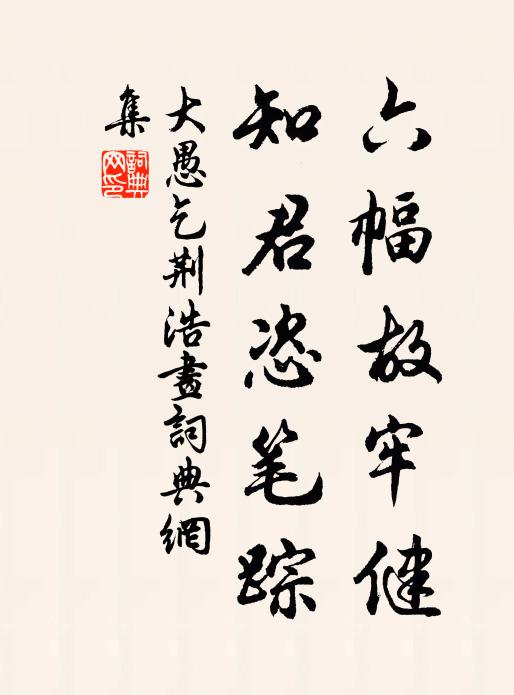 六幅故牢健
知君恣笔踪
大愚乞荆浩畫詞典網
集
詞典
网印